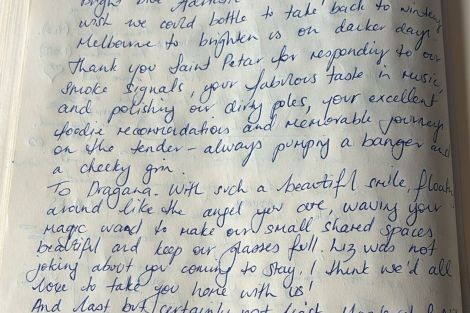 wish we could bottle to take back to windswept
Melbourne to brighten us on darker days.
Thank you Saint Petar for responding to our
smoke signals, your fabulous taste in music,
and polishing our dirty poles, your excellent
foodie recomodations and memorable journeys
on the tender - always pumping a banger and
a cheeky grin.
To Dragana. With such a beautiful smile, floating
around like the angel you are, waving your
magic wand to make our small shared spaces
beautiful and keep our glasses full. Liz was not
joking about you coming to stay. I think we'd all
love to take you home with us!
And last but certainly not least